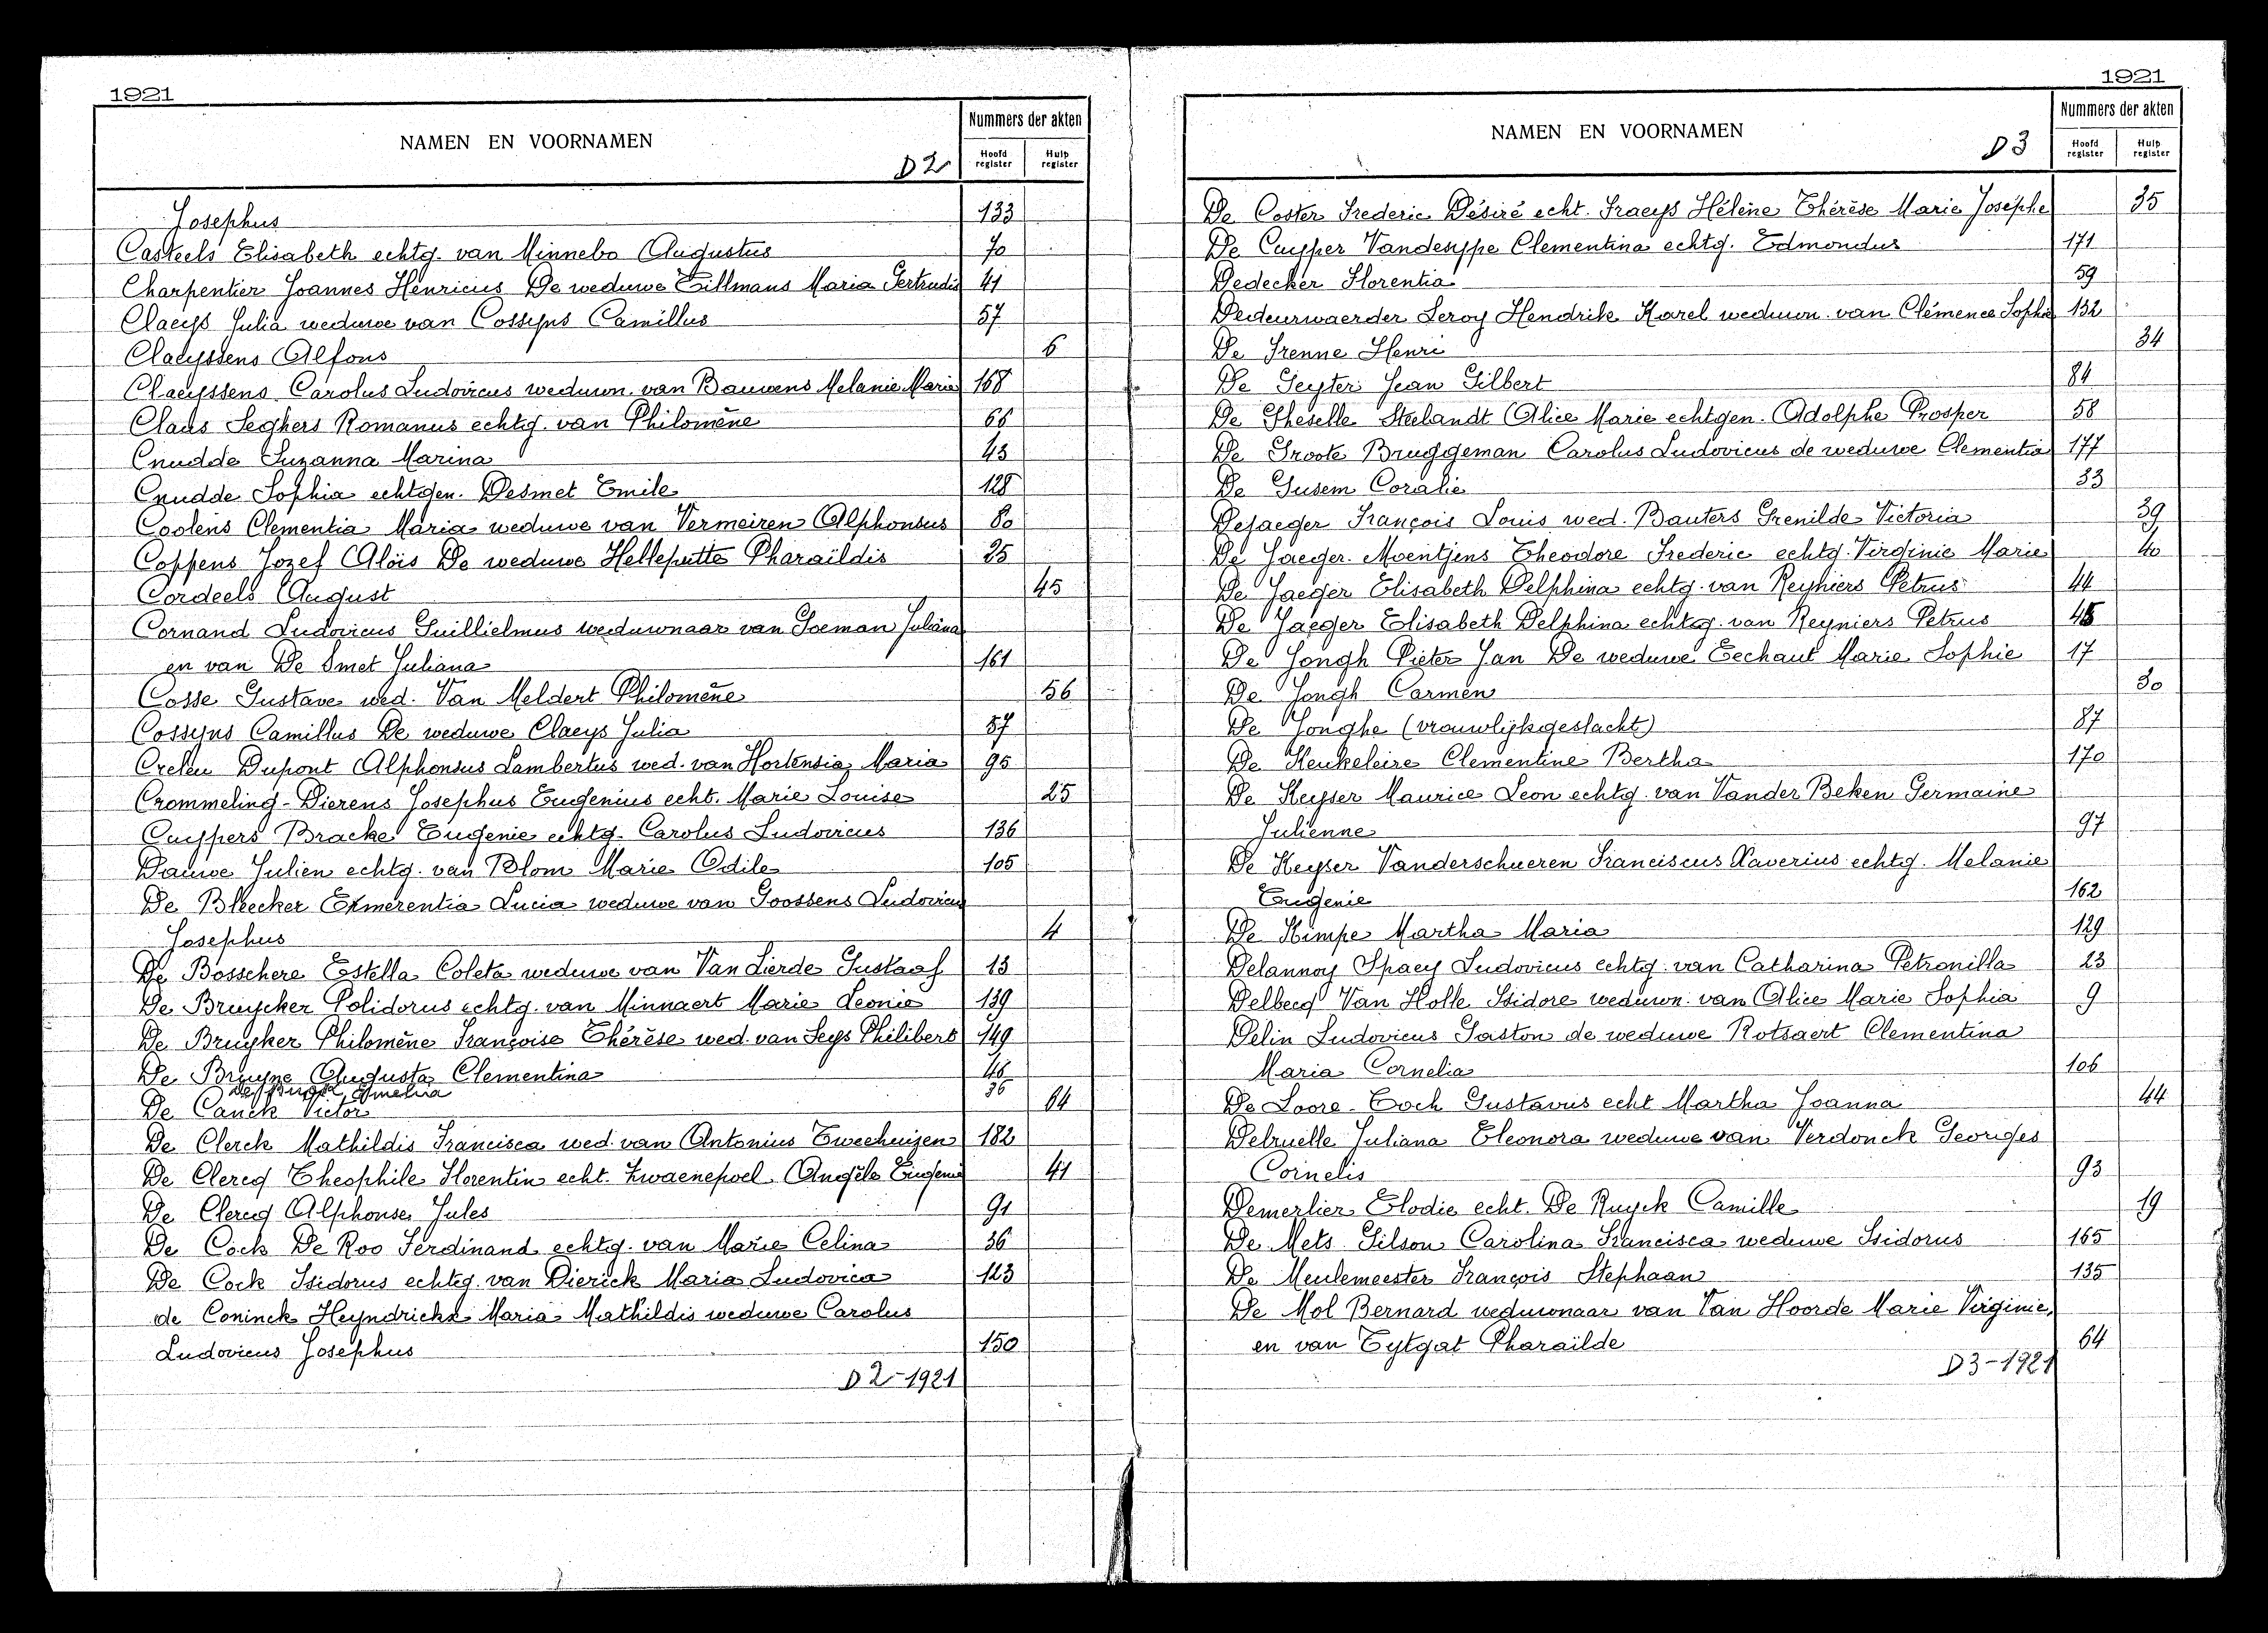 1921
NAMEN EN VOORNAMEN
D 2
Nummers der akten
Hoofd register
Hulp register
Josephus 133
Casteels Elisabeth echtg. van Minnebo Augustus 70
Charpentier Joannes Henricus De weduwe Tillmans Maria Gertrudis 41
Claeys Julia weduwe van Cossyns Camillus 57
Claeyssens Alfons 6
Claeyssens Carolus Ludovicus weduwn. van Bauwens Melanie Marie 168
Claus Seghers Romanus echtg. van Philomène 66
Cnudde Suzanna Marina 43
Cnudde Sophia echtgen. Desmet Emile 128
Coolens Clementia Maria weduwe van Vermeiren Alphonsus 80
Coppens Jozef Aloïs De weduwe Helleputte Pharaildis 25
Cordeels August 45
Cornand Ludovicus Guillielmus weduwnaar van Goeman Juliana
en van De Smet Juliana 161
Cosse Gustave wed. Van Meldert Philomène 56
Cossyns Camillus De weduwe Claeys Julia 57
Crelen Dupont Alphonsus Lambertus wed. van Hortensia Maria 95
Crommeling-Dierens Josephus Eugenius echt. Marie Louise 25
Cuypers Bracke Eugenie echtg. Carolus Ludovicus 136
Dauwe Julien echtg. van Blom Marie Odile 105
De Bleecker Emerentia Lucia weduwe van Goossens Ludovicus
Josephus 4
De Bosschere Estella Coleta weduwe van Van Lierde Gustaaf 13
De Bruycker Polidorus echtg. van Minnaert Marie Leonie 139
De Bruyker Philomène Françoise Thérèse wed. van Seys Philibert 149
De Bruyne Augusta Clementina 46
Amelia 36
De Canck Victor 64
De Clerck Mathildis Francisca wed. van Antonius Eweehuizen 182
De Clercq Theophile Florentin echt. Zwaenepoel Angèle Eugenie 41
De Clercq Alphonse Jules 91
De Cock De Roo Ferdinand echtg. van Marie Celina 36
De Cock Isidorus echtg. van Dierick Maria Ludovica 123
de Coninck Heyndrickx Maria Mathildis weduwe Carolus
Ludovicus Josephus 150
D 2-1921
1921
NAMEN EN VOORNAMEN
D 3
Nummers der akten
Hoofd register
Hulp register
De Coster Frederic Désiré echt. Fraeys Hélène Thérèse Marie Josephe 35
De Cuyper Vandesype Clementina echtg. Edmondus 171
Dedecker Florentia 59
Dedeurwaerder Leroy Hendrik Karel weduwn. van Clémence Sophie 132
De Frenne Henri 34
De Geyter Jean Gilbert 84
De Gheselle Steelandt Alice Marie echtgen. Adolphe Prosper 58
De Groote Bruggeman Carolus Ludovicus de weduwe Clementia 177
De Gusem Coralie 33
Dejaeger François Louis wed. Bauters Grenilde Victoria 39
De Jaeger-Moentjens Theodore Frederic echtg. Virginie Marie 40
De Jaeger Elisabeth Delphina echtg. van Reyniers Petrus 44
De Jaeger Elisabeth Delphina echtg. van Reyniers Petrus 45
De Jongh Pieter Jan De weduwe Eechaut Marie Sophie 17
De Jongh Carmen 30
De Jonghe (vrouwlijkgeslacht) 87
De Keukeleire Clementine Bertha 170
De Keyser Maurice Leon echtg. van Vander Beken Germaine
Julienne 97
De Keyser Vanderschueren Franciscus Xaverius echtg. Melanie
Eugenie 162
De Kimpe Martha Maria 129
Delannoy Spaey Ludovicus echtg. van Catharina Petronilla 23
Delbecq Van Holle Isidore weduwn. van Alice Marie Sophia 9
Delin Ludovicus Gaston de weduwe Rotsaert Clementina
Maria Cornelia 106
De Loore-Coch Gustavus echt Martha Joanna 44
Delruelle Juliana Eleonora weduwe van Verdonck Georges
Cornelis 93
Demerlier Elodie echt. De Ruyck Camille 19
De Mets Gilson Carolina Francisca weduwe Isidorus 165
De Meulemeester François Stephaan 135
De Mol Bernard weduwnaar van Van Hoorde Marie Virginie,
en van Eytgat Pharaïlde 64
D 3-1921